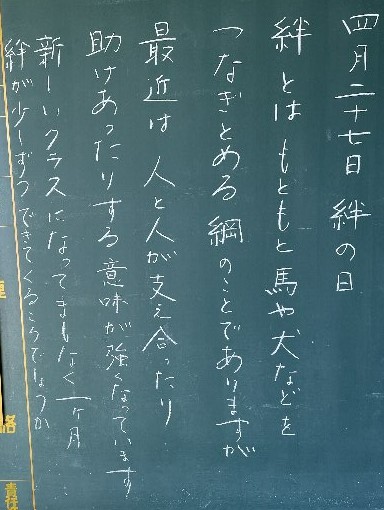 四月二十七日 絆の日
絆とは もともと馬や犬などを
つなぎとめる綱のことでありますが
最近は 人と人が支え合ったり
助けあったりする意味が強くなっています
新しいクラスになってまもなく一ヶ月
絆が少しずつできてくるころでしょうか
絡
責任